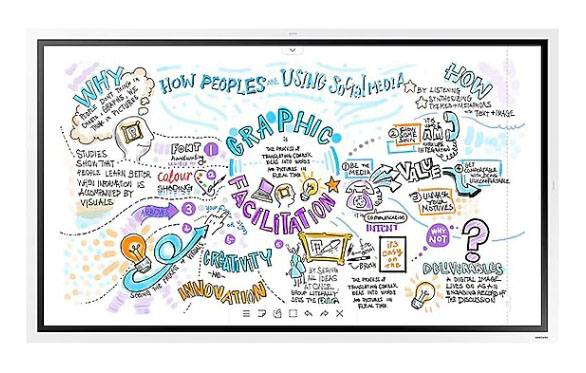 WHY
HOW PEOPLES ARE USING SOCIAL MEDIA
HOW
PEOPLE DON'T THINK IN
THINK IN PICTURES
BY LISTENING
SYNTHESIZING
THEMES + METAPHORS
→ TEXT + IMAGE
GRAPHIC
IS
THE PROCESS OF
TRANSLATING COMPLEX
IDEAS INTO WORDS
AND PICTURES IN
REAL TIME
FACILITATION
STUDIES
SHOW THAT
PEOPLE LEARN BETTER
WHEN INFORMATION IS
ACCOMPANIED BY
VISUALS
FONT
1
colour
2
SHADING
ARROWS
3
4
5
6
① BE THE
MEDIA
VALUE
② KNOW
SOME
I
AM
GET
COMFORTABLE
WITH BEING
UNCOMFORTABLE
③ UNMASK
YOUR
MOTIVES
COMMUNICATION
INTENT
WHY
NOT
?
CREATIVITY
INNOVATION
SEEING THE BIGGER PICTURE
BY SEEING
ALL IDEAS
AT ONCE,
GROUP LITERALLY
SEES THE
THE PROCESS OF
TRANSLATING COMPLEX
IDEAS INTO WORDS
AND PICTURES IN
REAL TIME
it's
only
on
one
DELIVERABLES
A DIGITAL IMAGE
LIVES ON AS AN
ENGAGING RECORD OF
THE DISCUSSION
SAMSUNG